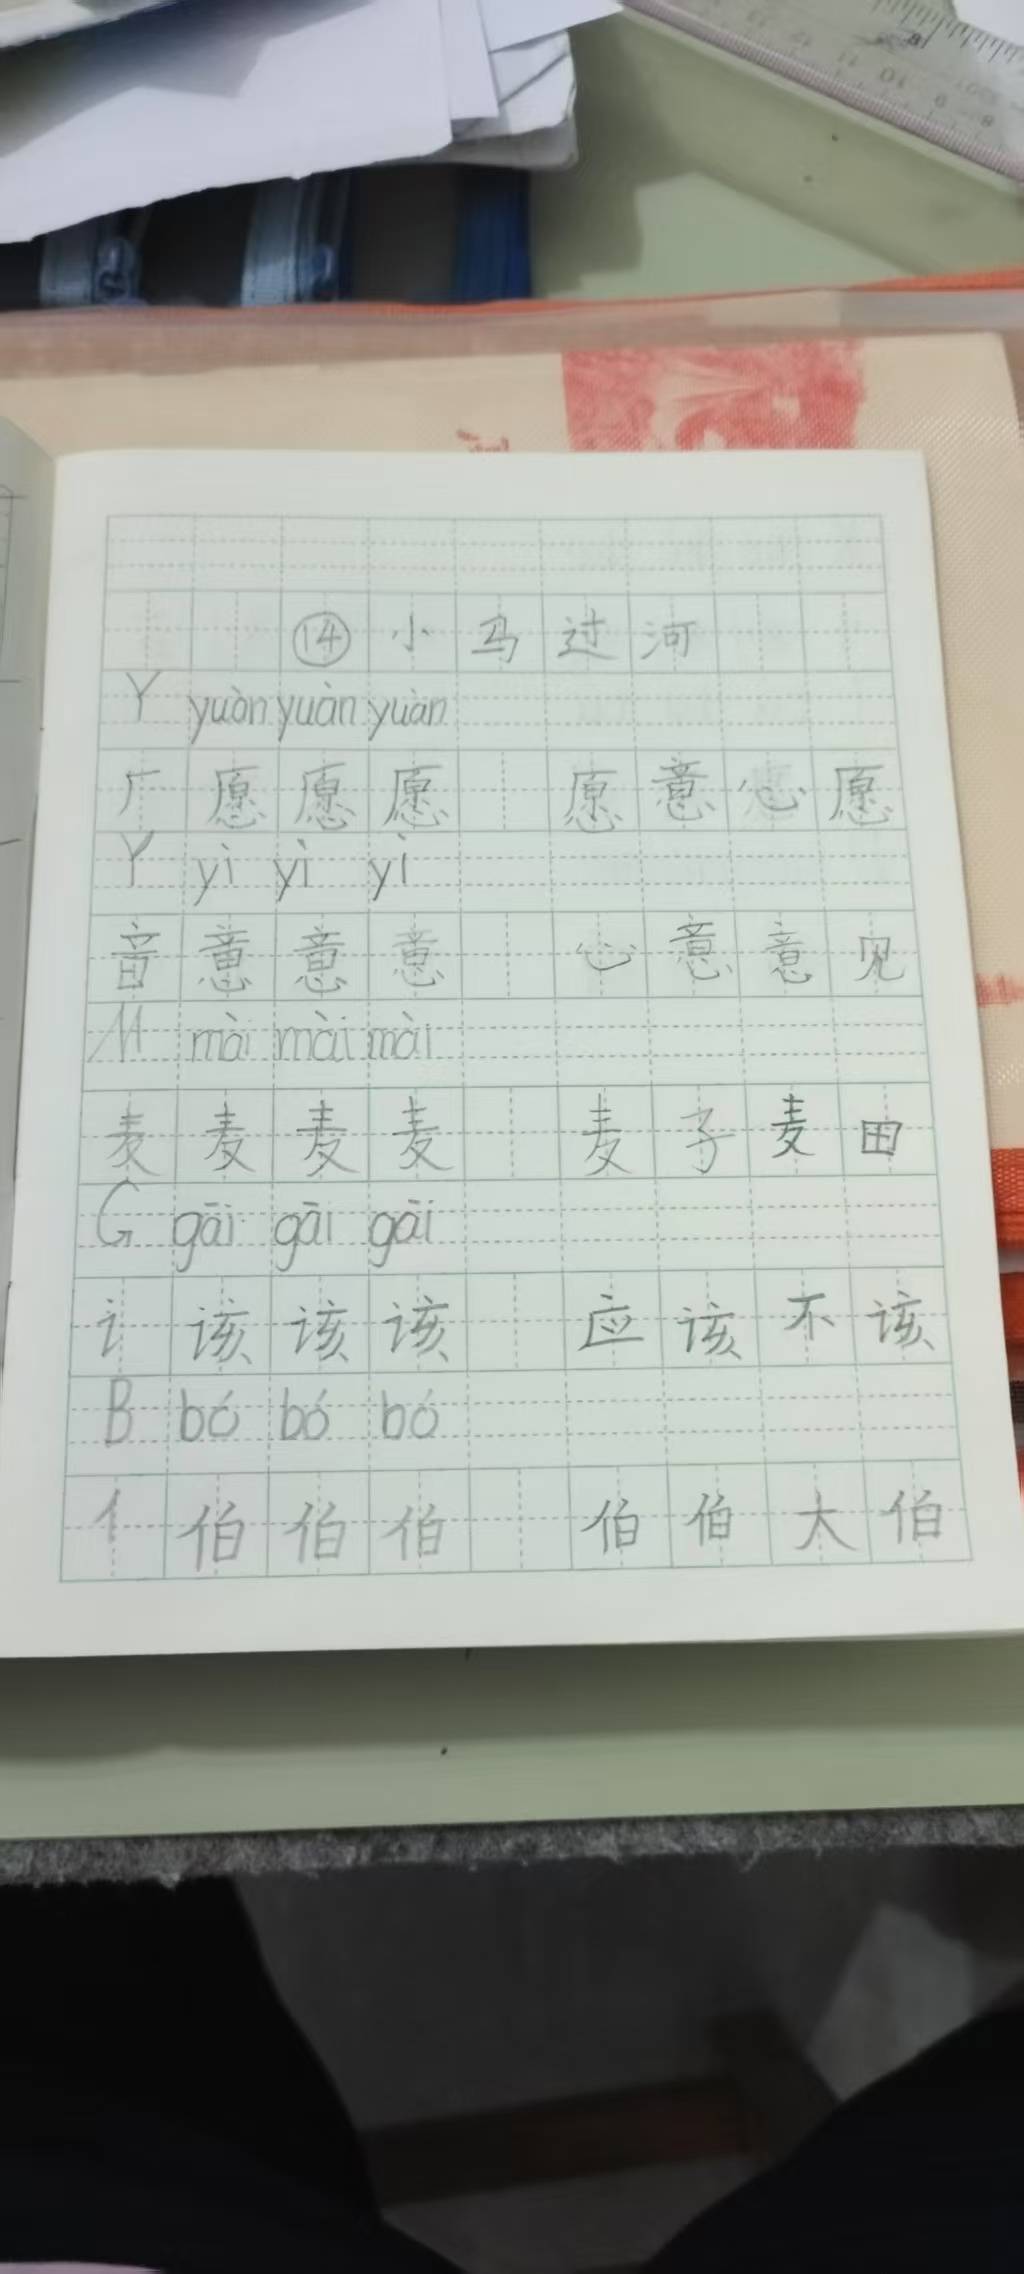 ⑭小马过河
Y yuàn yuàn yuàn
厂 愿 愿 愿 愿 意 心 愿
Y yì yì yì
音 意 意 意 心 意 意 见
M mài mài mài
麦 麦 麦 麦 麦 子 麦 田
G gāi gāi gāi
讠 该 该 该 应 该 不 该
B bó bó bó
亻 伯 伯 伯 伯 伯 大 伯